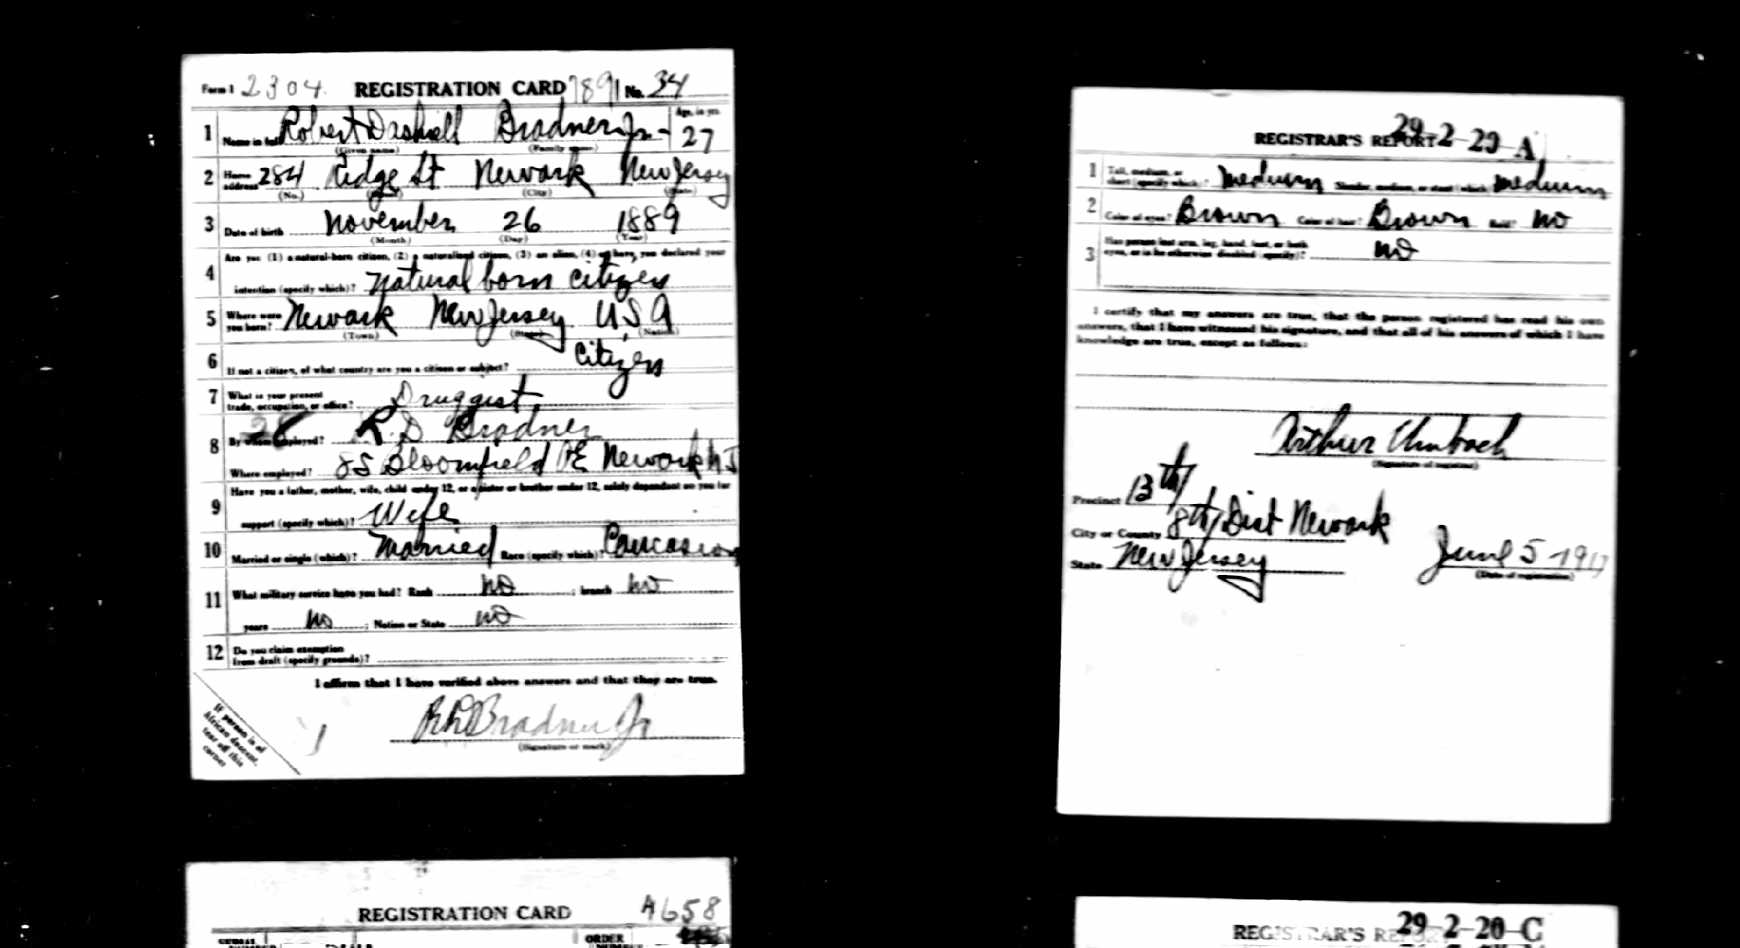 Form 1 2304. REGISTRATION CARD 7891 No. 34
1 Name in full Robert Dashiell Bradner Jr- Age, in yrs. 27
(Given name) (Family name)
2 Home address 284 Ridge St Newark New Jersey
(No.) (Street) (City) (State)
3 Date of birth November 26 1889
(Month) (Day) (Year)
4 Are you (1) a natural-born citizen, (2) a naturalized citizen, (3) an alien, (4) or have you declared your
intention (specify which)? Natural born citizen
5 Where were you born? Newark New Jersey U.S.A
(Town) (State) (Nation)
6 If not a citizen, of what country are you a citizen or subject? Citizen
7 What is your present trade, occupation, or office? Druggist
8 By whom employed? R. D Bradner
Where employed? 85 Bloomfield Newark N J
9 Have you a father, mother, wife, child under 12, or a sister or brother under 12, solely dependent on you for
support (specify which)? Wife
10 Married or single (which)? Married Race (specify which)? Caucasian
11 What military service have you had? Rank no ; branch no
years no ; Nation or State no
12 Do you claim exemption from draft (specify grounds)?
I affirm that I have verified above answers and that they are true.
R D Bradner Jr
(Signature or mark)
If person is of
African descent,
tear off this
corner
REGISTRAR'S REPORT 29-2-29 A
1 Tall, medium, or short (specify which)? Medium Slender, medium, or stout (which)? Medium
2 Color of eyes? Brown Color of hair? Brown Bald? No
3 Has person lost arm, leg, hand, foot, or both eyes, or is he otherwise disabled (specify)? No
I certify that my answers are true, that the person registered has read his own
answers, that I have witnessed his signature, and that all of his answers of which I have
knowledge are true, except as follows:
Arthur Umbach
(Signature of registrar)
Precinct 13th
City or County 8th Dist Newark
State New Jersey June 5-1917
(Date of registration)
REGISTRATION CARD 4658
SERIAL NUMBER ORDER NUMBER
REGISTRAR'S REPORT 29-2-20-C